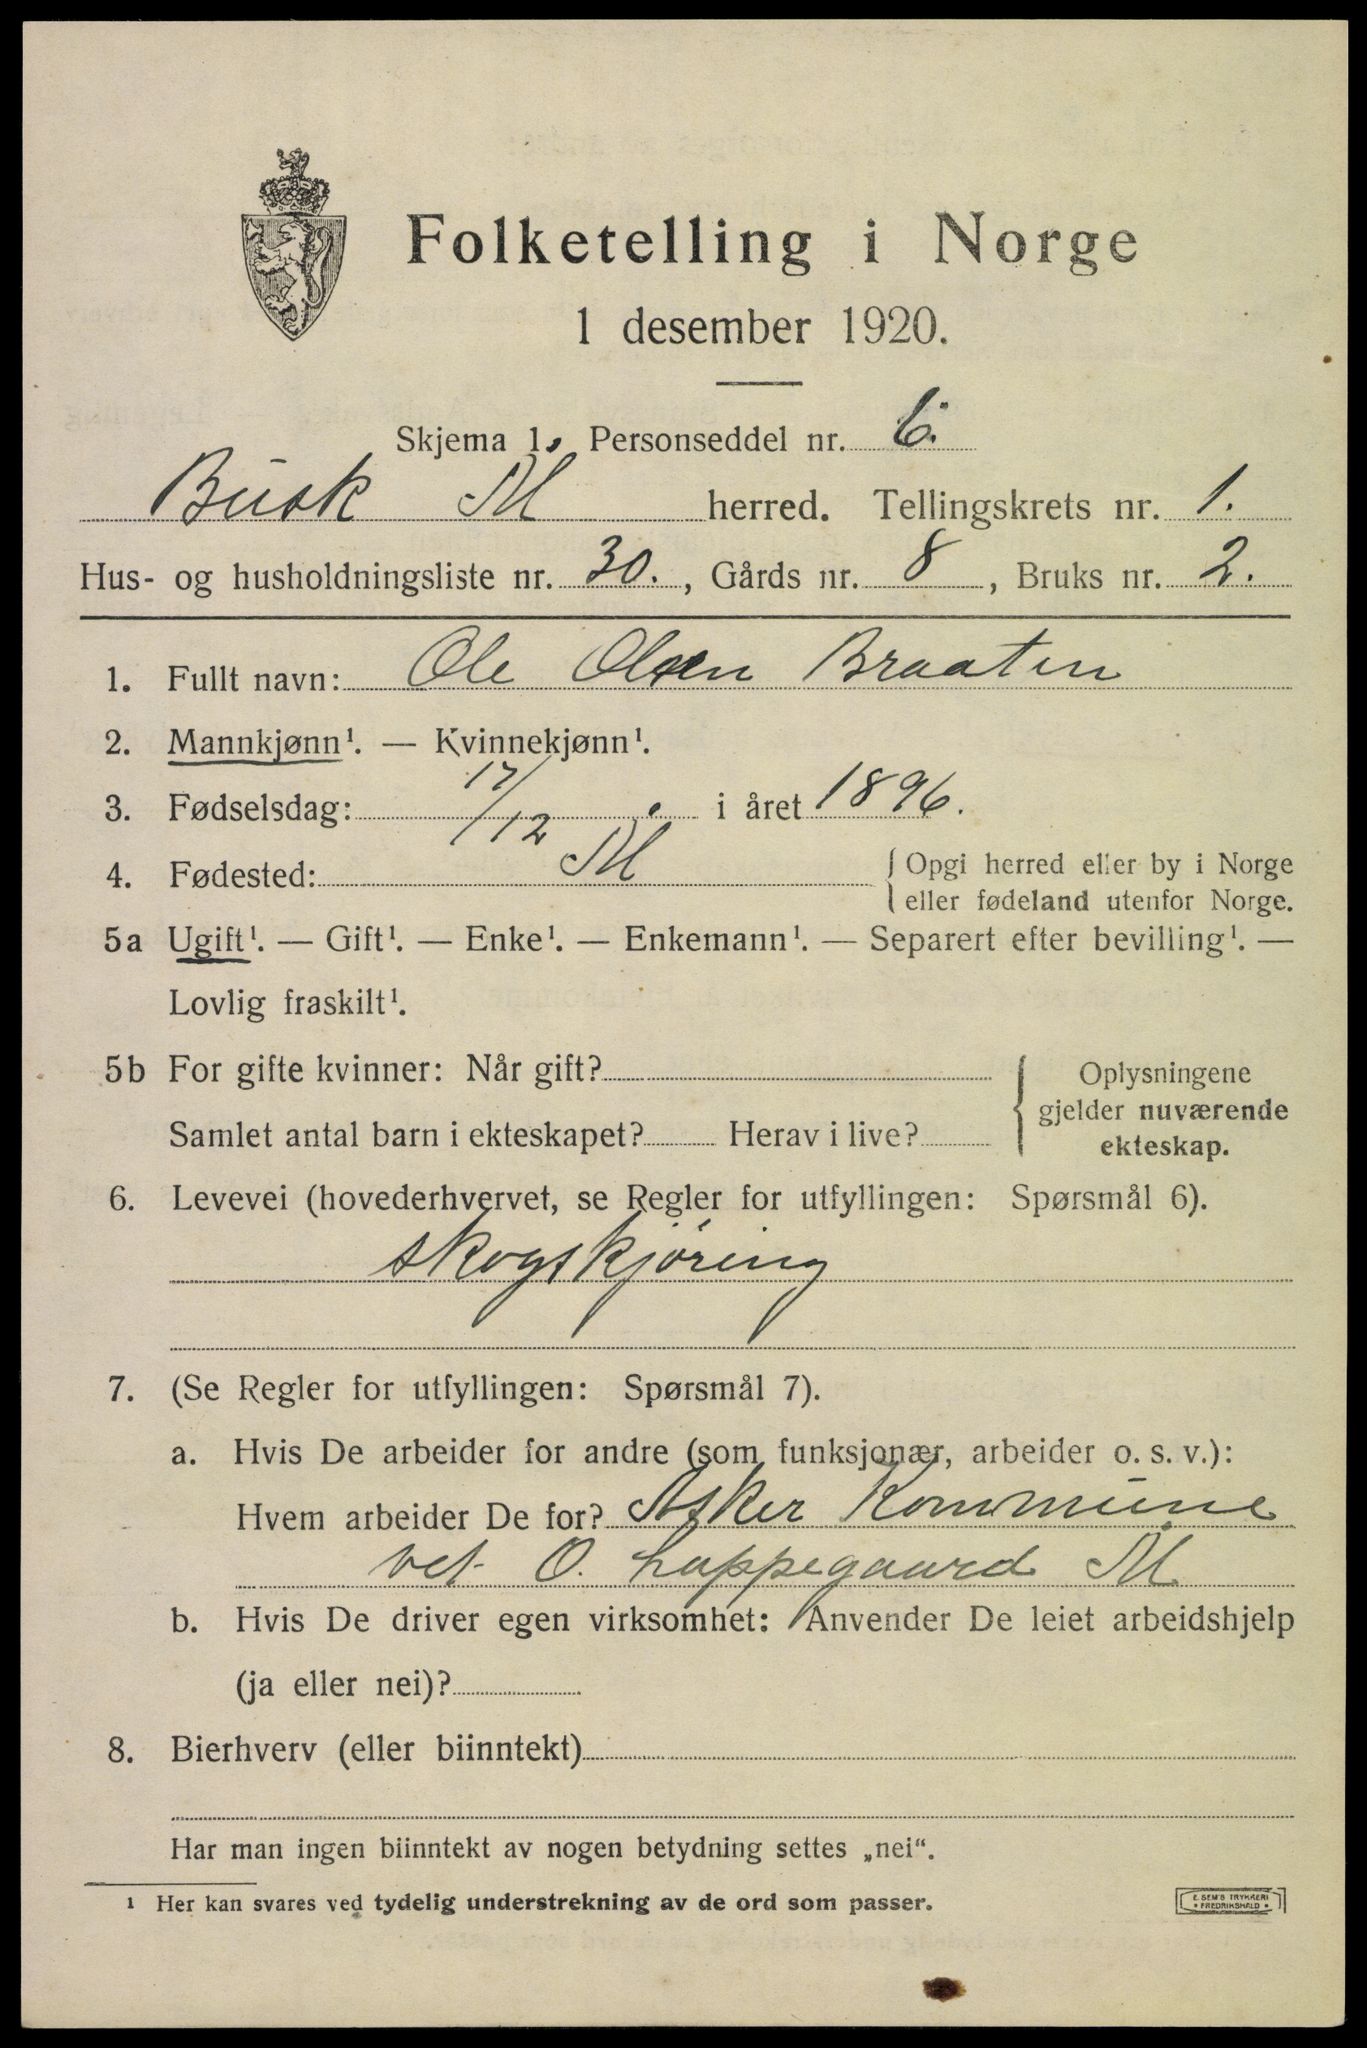 Folketelling i Norge
1 desember 1920.
Skjema 1. Personseddel nr. 6.
Busk Ål herred. Tellingskrets nr. 1.
Hus- og husholdningsliste nr. 30., Gårds nr. 8, Bruks nr. 2.
1. Fullt navn: Ole Olsen Braaten
2. Mannkjønn¹. — Kvinnekjønn¹.
3. Fødselsdag: 17/12 . i året 1896.
4. Fødested: Ål { Opgi herred eller by i Norge
eller fødeland utenfor Norge.
5a Ugift¹. — Gift¹. — Enke¹. — Enkemann¹. — Separert efter bevilling¹. —
Lovlig fraskilt¹.
5b For gifte kvinner: Når gift?
Samlet antal barn i ekteskapet? Herav i live?
{ Oplysningene
gjelder nuværende
ekteskap.
6. Levevei (hovederhvervet, se Regler for utfyllingen: Spørsmål 6).
skogskjøring
7. (Se Regler for utfyllingen: Spørsmål 7).
a. Hvis De arbeider for andre (som funksjonær, arbeider o. s. v.):
Hvem arbeider De for? Asker Kommune
ved O. Lappegaard Ål
b. Hvis De driver egen virksomhet: Anvender De leiet arbeidshjelp
(ja eller nei)?
8. Bierhverv (eller biinntekt)
Har man ingen biinntekt av nogen betydning settes „nei“.
¹ Her kan svares ved tydelig understrekning av de ord som passer.
E. SEM'S TRYKKERI
* FREDRIKSHALD *